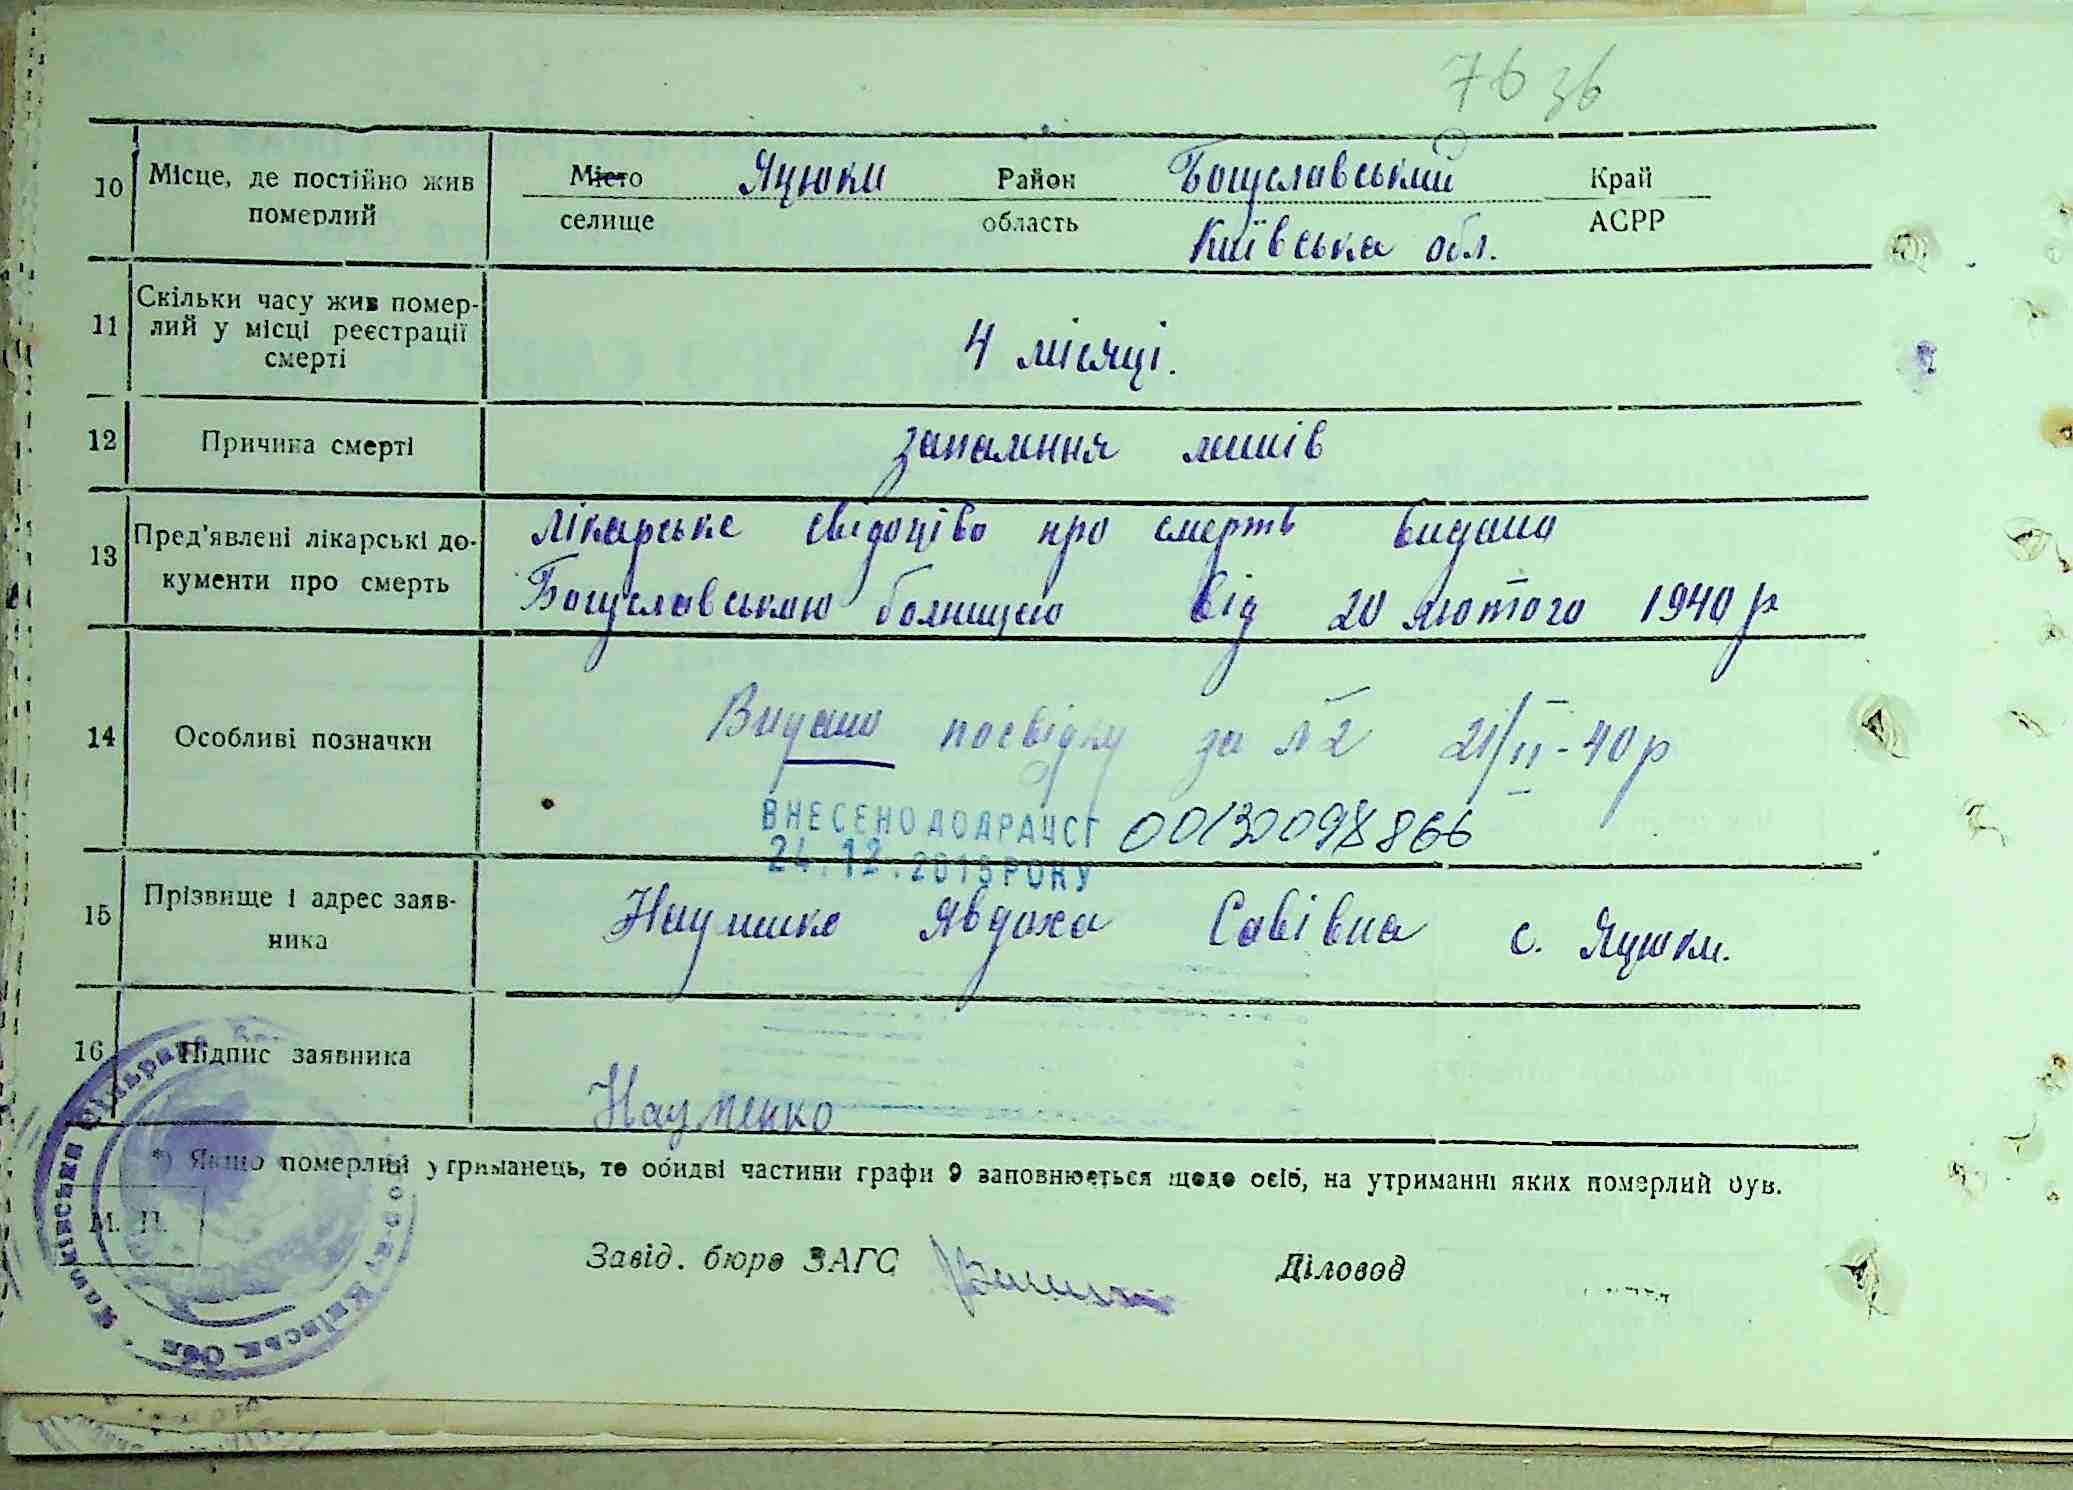 76 зв
10 Місце, де постійно жив померлий
Місто Яцюки Район Богуславський Край
селище область Київська обл. АСРР
11 Скільки часу жив помер-
лий у місці реєстрації
смерті
4 місяці.
12 Причина смерті запалння легків
13 Пред'явлені лікарські до-
кументи про смерть
Лікарське свідоцтво про смерть видано
Богуславською болницею від 20 лютого 1940 р
14 Особливі позначки
Видано посвідку за № 2 21/II-40 р
ВНЕСЕНО ДО ДРАЦСГ 00132098866
24.12.2015 РОКУ
15 Прізвище і адрес заяв-
ника
Науменко Явдоха Савівна с. Яцюки.
16 Підпис заявника
Науменко
*) Якщо померлий утриманець, то обидві частини графи 9 заповнюється щодо осіб, на утриманні яких померлий був.
М. П.
Завід. бюро ЗАГС Діловод
сільрада Київськ. Обл.